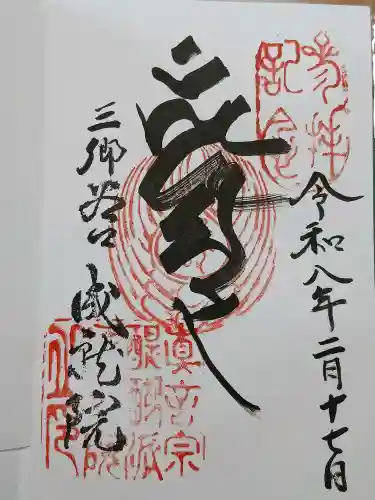 参拝
記念
令和八年二月十七日
三郷谷口
成就院
眞言宗
醍醐派